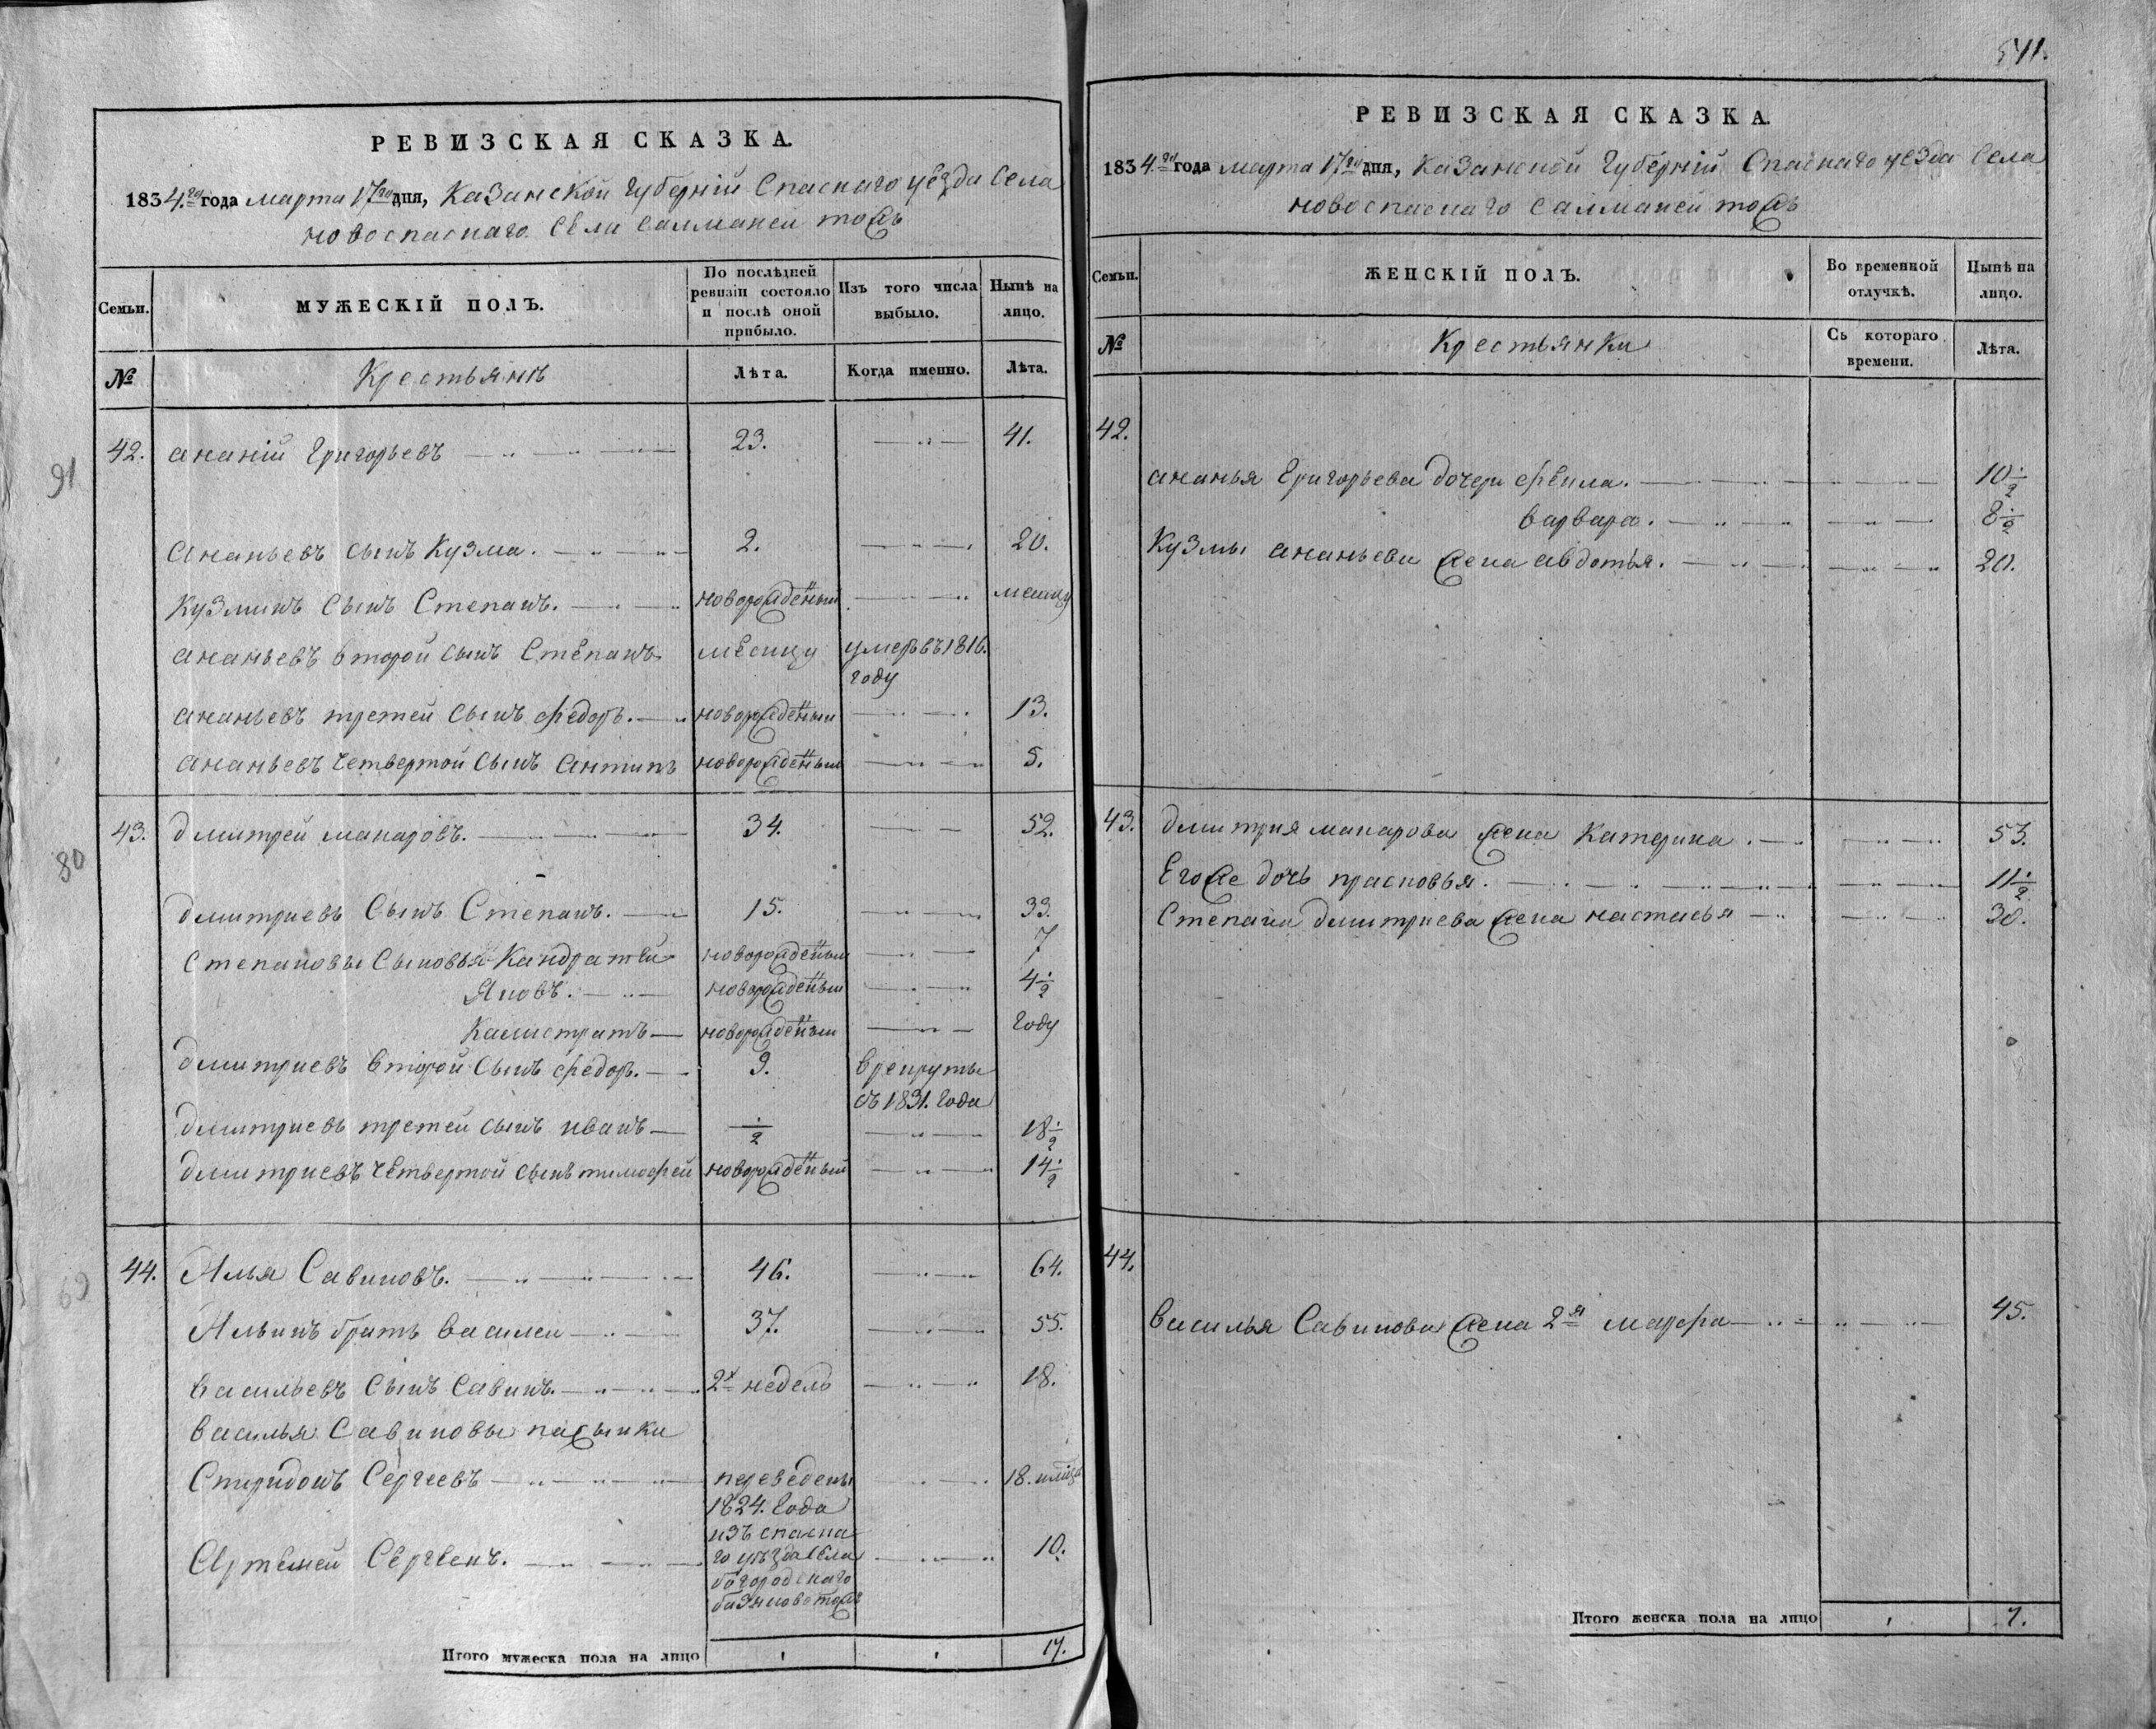 РЕВИЗСКАЯ СКАЗКА.
1834.го года марта 17го дня, Казанской губерній Спаскаго уѣзда Села
новоспаскаго Села Салманеи тожъ
Семьи.
МУЖЕСКІЙ ПОЛЪ.
По послѣдней ревизіи состояло и послѣ оной прибыло.
Изъ того числа выбыло.
Нынѣ на лицо.
№
Крестьянѣ
Лѣта.
Когда именно.
Лѣта.
42. ананій Григорьевъ 23. 41.
91
Ананьевъ сынъ Кузма. 2. 20.
Кузминъ Сынъ Степанъ. новорожденый
ананьевъ второй сынъ Степанъ месицу умеръ въ 1816. году
ананьевъ третей Сынъ федоръ. новорожденый 13.
ананьевъ четвертой Сынъ Антипъ новорожденый 5.
43. дмитрей макаровъ. 34. 52.
80
дмитриевъ Сынъ Степанъ. 15. 33.
Степановы Сыновья Кандратей новорожденый 7
Яковъ. новорожденый 4 1/2
Калистратъ новорожденый году
дмитриевъ второй Сынъ федоръ. 9. врекруты съ 1831. года
дмитриевъ третей сынъ иванъ 1/2 18 1/2
дмитриевъ четвертой сынъ тимофей новорожденый 14 1/2
44. Илья Савиновъ. 46. 64.
69
Ильинъ братъ василеи 37. 55.
васильевъ Сынъ Савинъ. 2х недель 18.
василья Савиновы пасынки
Спиридонъ Сергеевъ переведены 18.
1824. года
изъ спаска
го уѣзда села
Артемей Сергеевъ. 10.
богородскаго
тожъ
Итого мужеска пола на лицо 17.
541.
РЕВИЗСКАЯ СКАЗКА.
1834.го года марта 17го дня, Казанской губерній Спаскаго уѣзда Села
новоспаскаго Салманеи тожъ
Семьи.
ЖЕНСКІЙ ПОЛЪ.
Во временной отлучкѣ.
Нынѣ на лицо.
№
Крестьянки
Съ котораго времени.
Лѣта.
42.
ананья Григорьева дочери фекла. 10 1/2
варвара. 8 1/2
Кузмы ананьева жена авдотья. 20.
43. дмитрия макарова жена Катерина. 53.
Егоже дочь прасковья. 11 1/2
Степана дмитриева жена настасья 30.
44.
василья Савинова жена 2я марфа 45.
Итого женска пола на лицо 7.